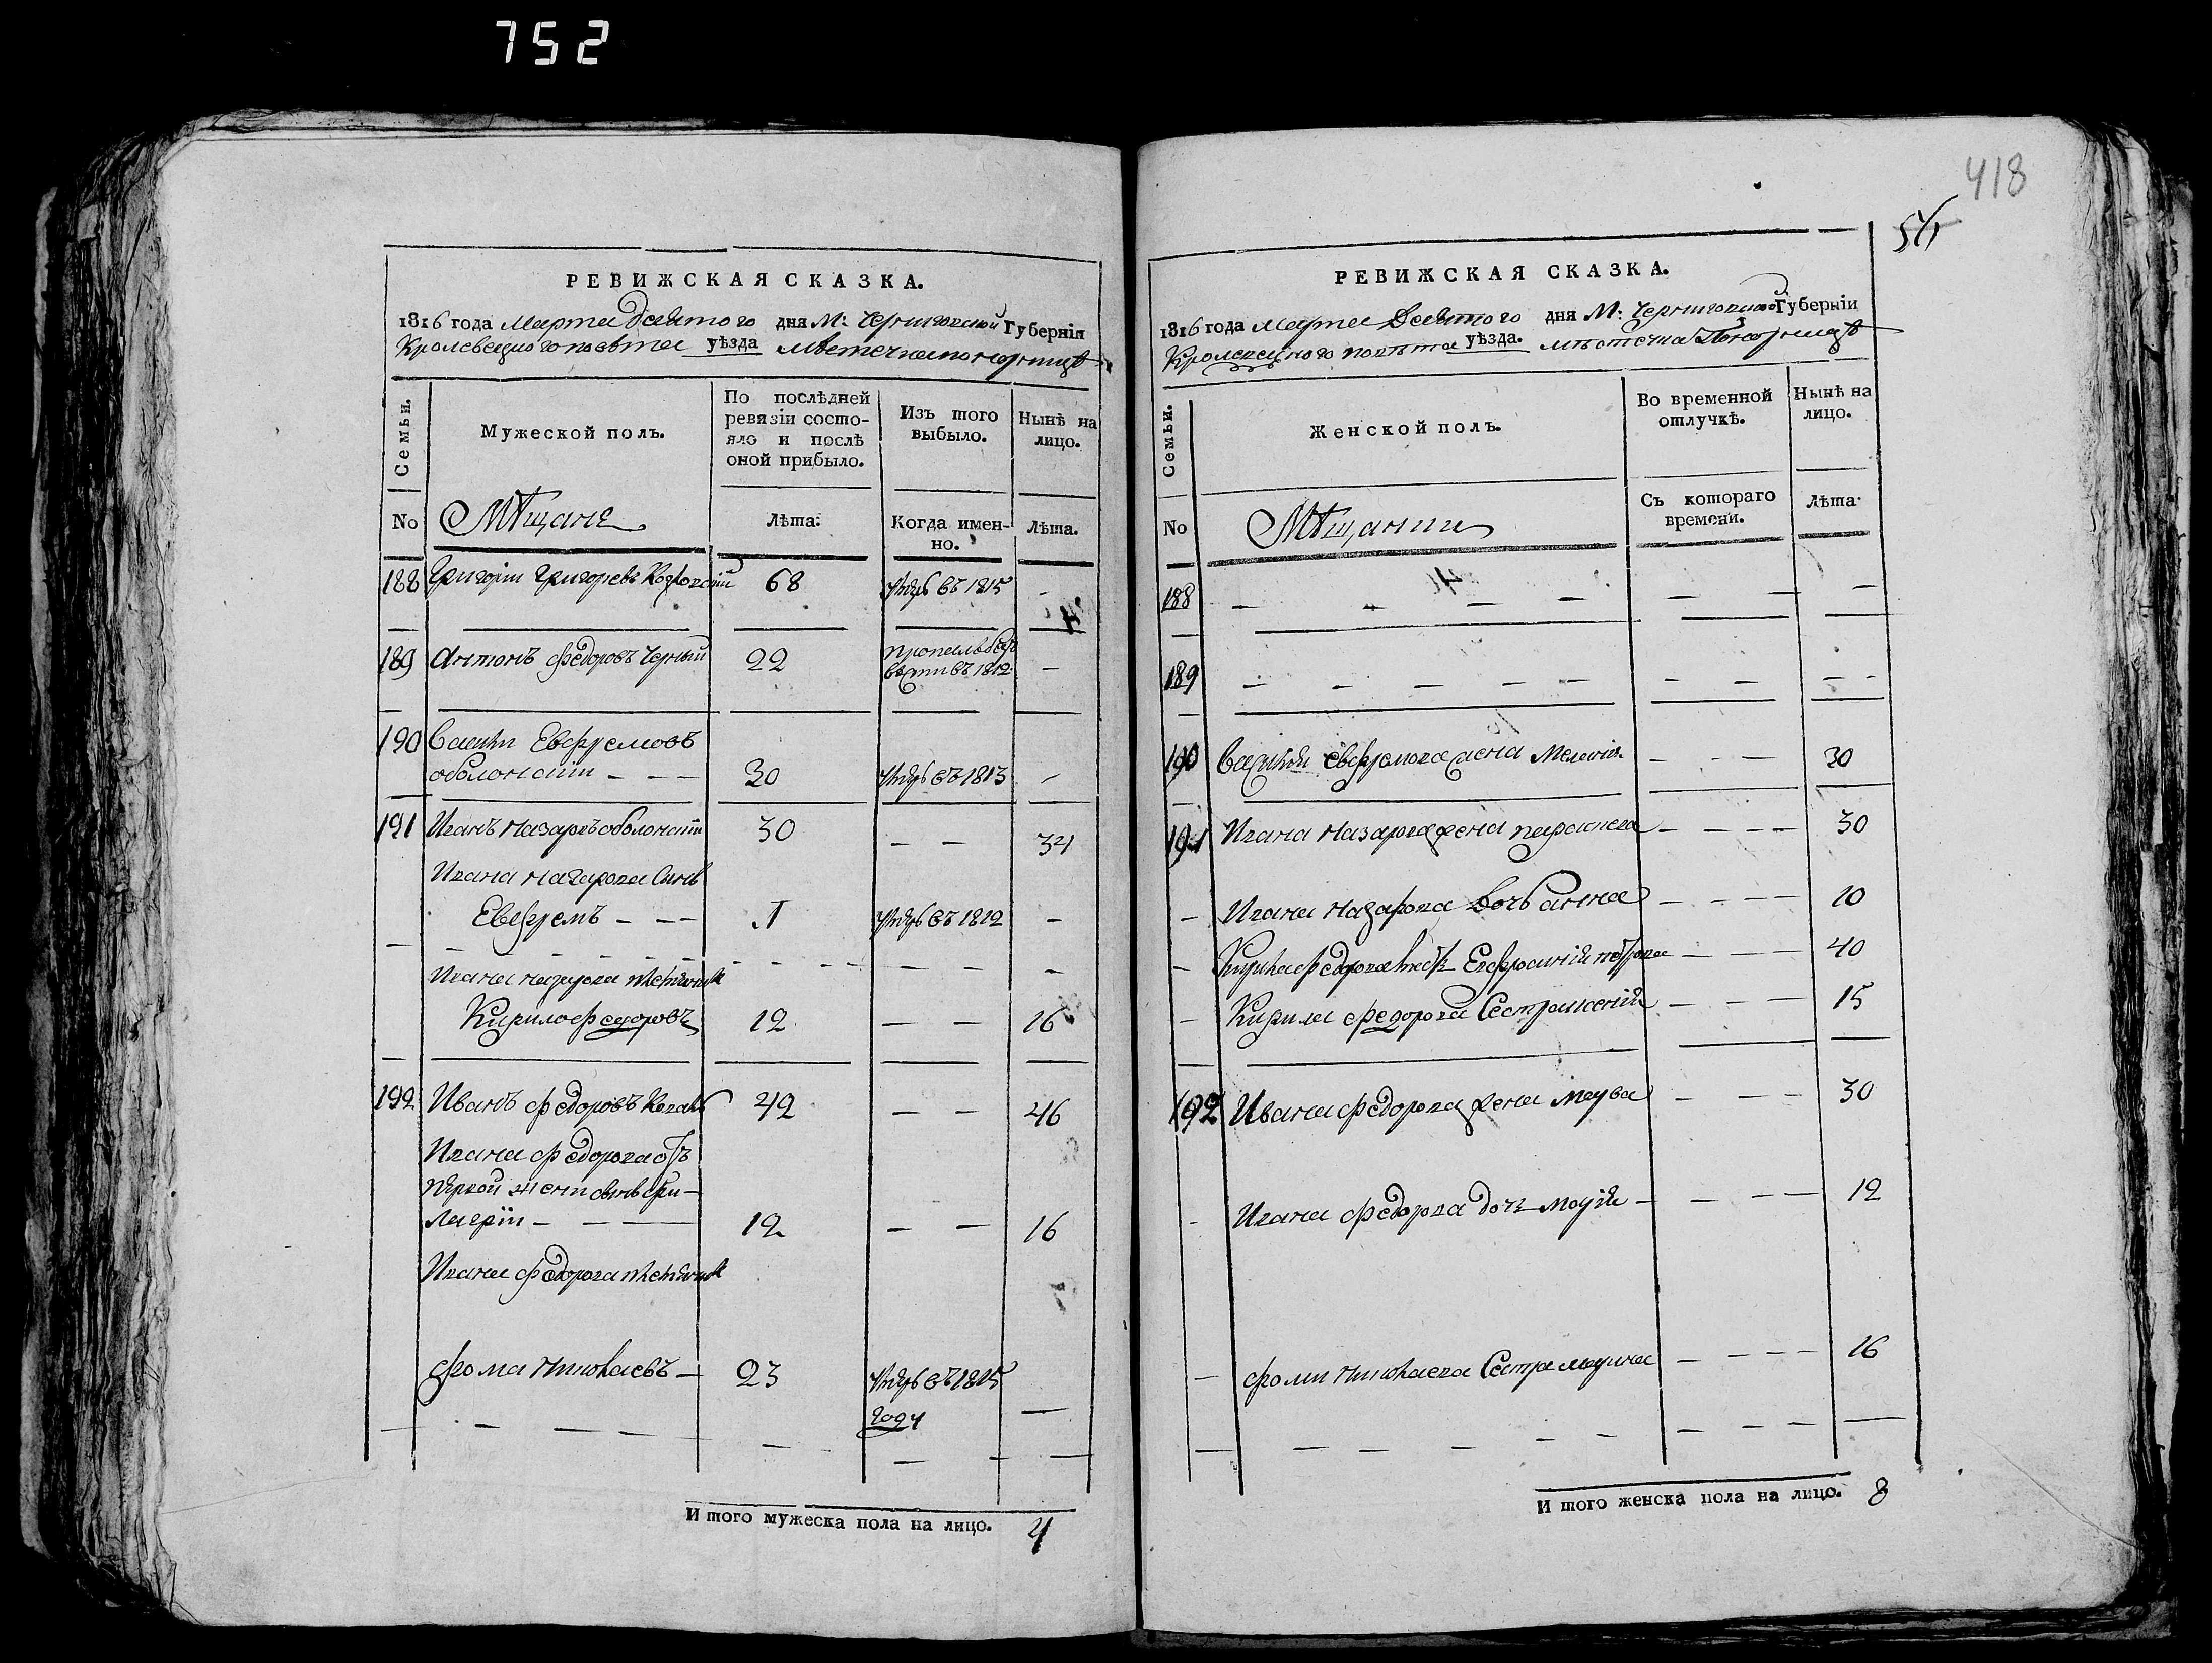 752
418
РЕВИЖСКАЯ СКАЗКА.
1816 года Марта десятого дня М: Черниговской Губерніи
Кролевецкого повѣта уѣзда мѣстечка
Семьи.
Мужеской полъ.
По послѣдней ревизіи состояло и послѣ оной прибыло.
Изъ того выбыло.
Нынѣ на лицо.
No
Мѣщане
Лѣта:
Когда именно.
Лѣта.
188 Григорій Григорьевъ Козловскій 68 умеръ въ 1815 -
189 Антонъ Федоровъ Черный 22 пропалъ безъ вѣсти въ 1812 —
190 Василій Евфремовъ
оболонскій - — — 30 умеръ въ 1813 -
191 Иванъ Назаровъ оболонскій 30 — — 34
Ивана Назарова Синъ
Евфремъ - — — 1 умеръ въ 1812 -
Ивана Назарова племянникъ
Кирило Федоровъ 12 — — 16
192 Иванъ Федоровъ 42 — — 46
Ивана Федорова отъ
первой жени синъ
— — — 12 — — 16
Ивана Федорова племянникъ
Фома Николаевъ — 23 умеръ въ 1815
году —
Итого мужеска пола на лицо. 4
РЕВИЖСКАЯ СКАЗКА.
1816 года Марта десятого дня М: Черниговской Губерніи
Кролевецкого повѣта уѣзда. мѣстечка
Семьи.
Женской полъ.
Во временной отлучкѣ.
Нынѣ на лицо.
No
Мѣщанки
Съ котораго времени.
Лѣта.
188 — — — — — — —
189 — — — — — — — — -
190 Василія Евфремова жена Меланія — — — 30
191 Ивана Назарова жена Параскева — — — — 30
— Ивана Назарова дочь анна — — — — 10
— Кирила Федорова Евфросинія Петрова — — — 40
— Кирила Федорова Сестра — — — 15
192 Ивана Федорова жена — — — 30
- Ивана Федорова дочь Марія — — — — 12
— Фоми Николаева Сестра Марина — — — — 16
Итого женска пола на лицо. 8